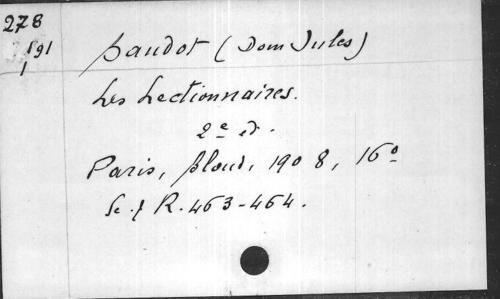 278
891
1
Baudot (Dom Jules)
Les Lectionnaires.
2e éd.
Paris, Bloud, 1908, 16º
Sc. f R. 463-464.